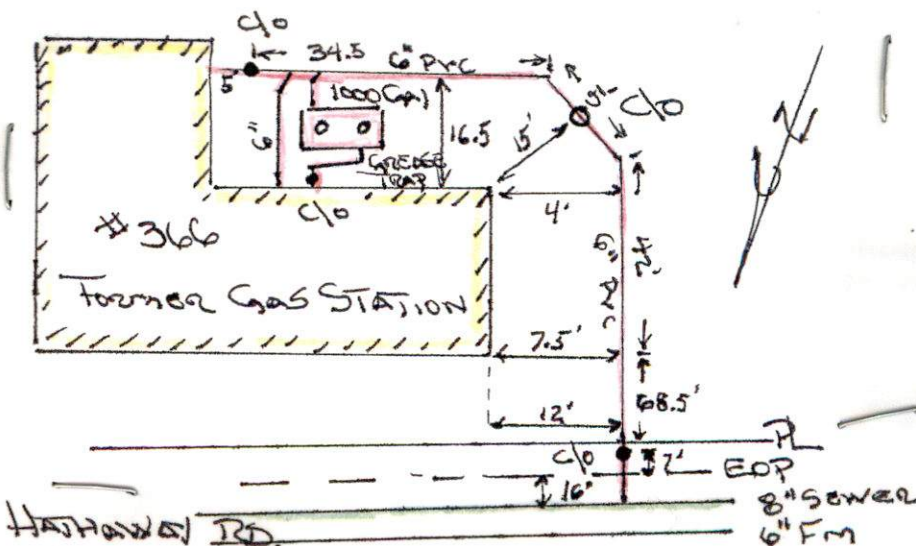 C/O
34.5
6" PVC
5'
1000 Gal
6"
16.5
GREASE
TRAP
C/O
15'
9'
C/O
4'
# 366
FORMER GAS STATION
6" PVC
7.5'
12'
68.5'
PL
C/O
2'
EOP
16"
8" SEWER
HATHAWAY RD.
6" FM